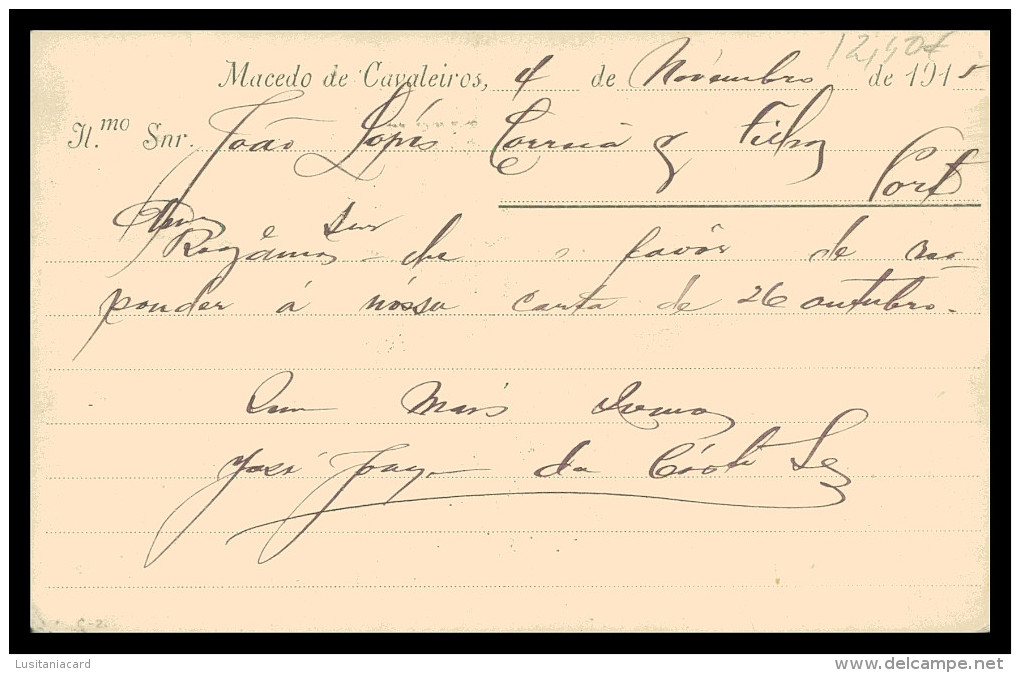 12,50€
Macedo de Cavaleiros, 4 de Novembro de 1915
Il.mo Snr. João Lopes Correia & Filho
Port
Amo e Snr
Rogamos-lhe o favôr de res-
ponder á nóssa carta de 26 outubro.
Sem mais Somos
José Joaqm da Cósta
C-2
Lusitaniacard
www.delcampe.net